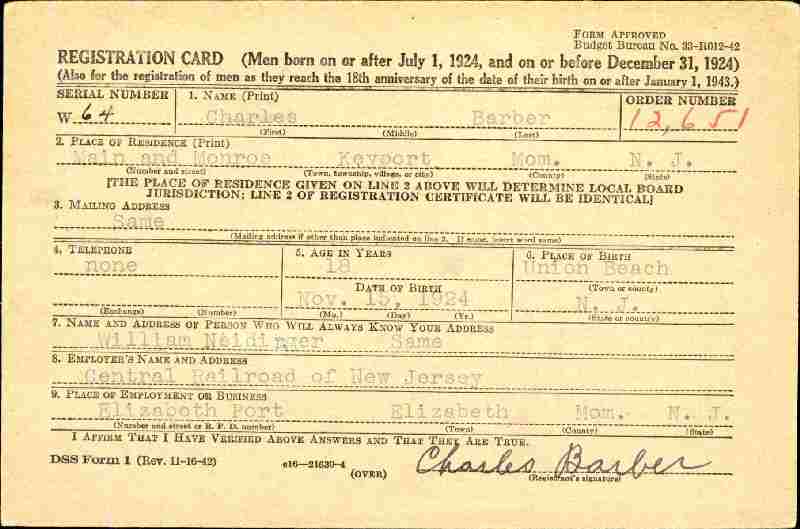 FORM APPROVED
Budget Bureau No. 33-R012-42
REGISTRATION CARD (Men born on or after July 1, 1924, and on or before December 31, 1924)
(Also for the registration of men as they reach the 18th anniversary of the date of their birth on or after January 1, 1943.)
SERIAL NUMBER 1. NAME (Print) ORDER NUMBER
W 64 Charles Barber 12,651
(First) (Middle) (Last)
2. PLACE OF RESIDENCE (Print)
Main and Monroe Keyport Mom. N. J.
(Number and street) (Town, township, village, or city) (County) (State)
[THE PLACE OF RESIDENCE GIVEN ON LINE 2 ABOVE WILL DETERMINE LOCAL BOARD
JURISDICTION; LINE 2 OF REGISTRATION CERTIFICATE WILL BE IDENTICAL]
3. MAILING ADDRESS
Same
(Mailing address if other than place indicated on line 2. If same, insert word same)
4. TELEPHONE 5. AGE IN YEARS 6. PLACE OF BIRTH
none 18 Union Beach
DATE OF BIRTH (Town or county)
Nov. 15, 1924 N. J.
(Exchange) (Number) (Mo.) (Day) (Yr.) (State or country)
7. NAME AND ADDRESS OF PERSON WHO WILL ALWAYS KNOW YOUR ADDRESS
William Neidinger Same
8. EMPLOYER'S NAME AND ADDRESS
Central Railroad of New Jersey
9. PLACE OF EMPLOYMENT OR BUSINESS
Elizaboth Port Elizabeth Mom. N. J.
(Number and street or R. F. D. number) (Town) (County) (State)
I AFFIRM THAT I HAVE VERIFIED ABOVE ANSWERS AND THAT THEY ARE TRUE.
DSS Form 1 (Rev. 11-16-42) e16-21630-4 Charles Barber
(OVER) (Registrant's signature)